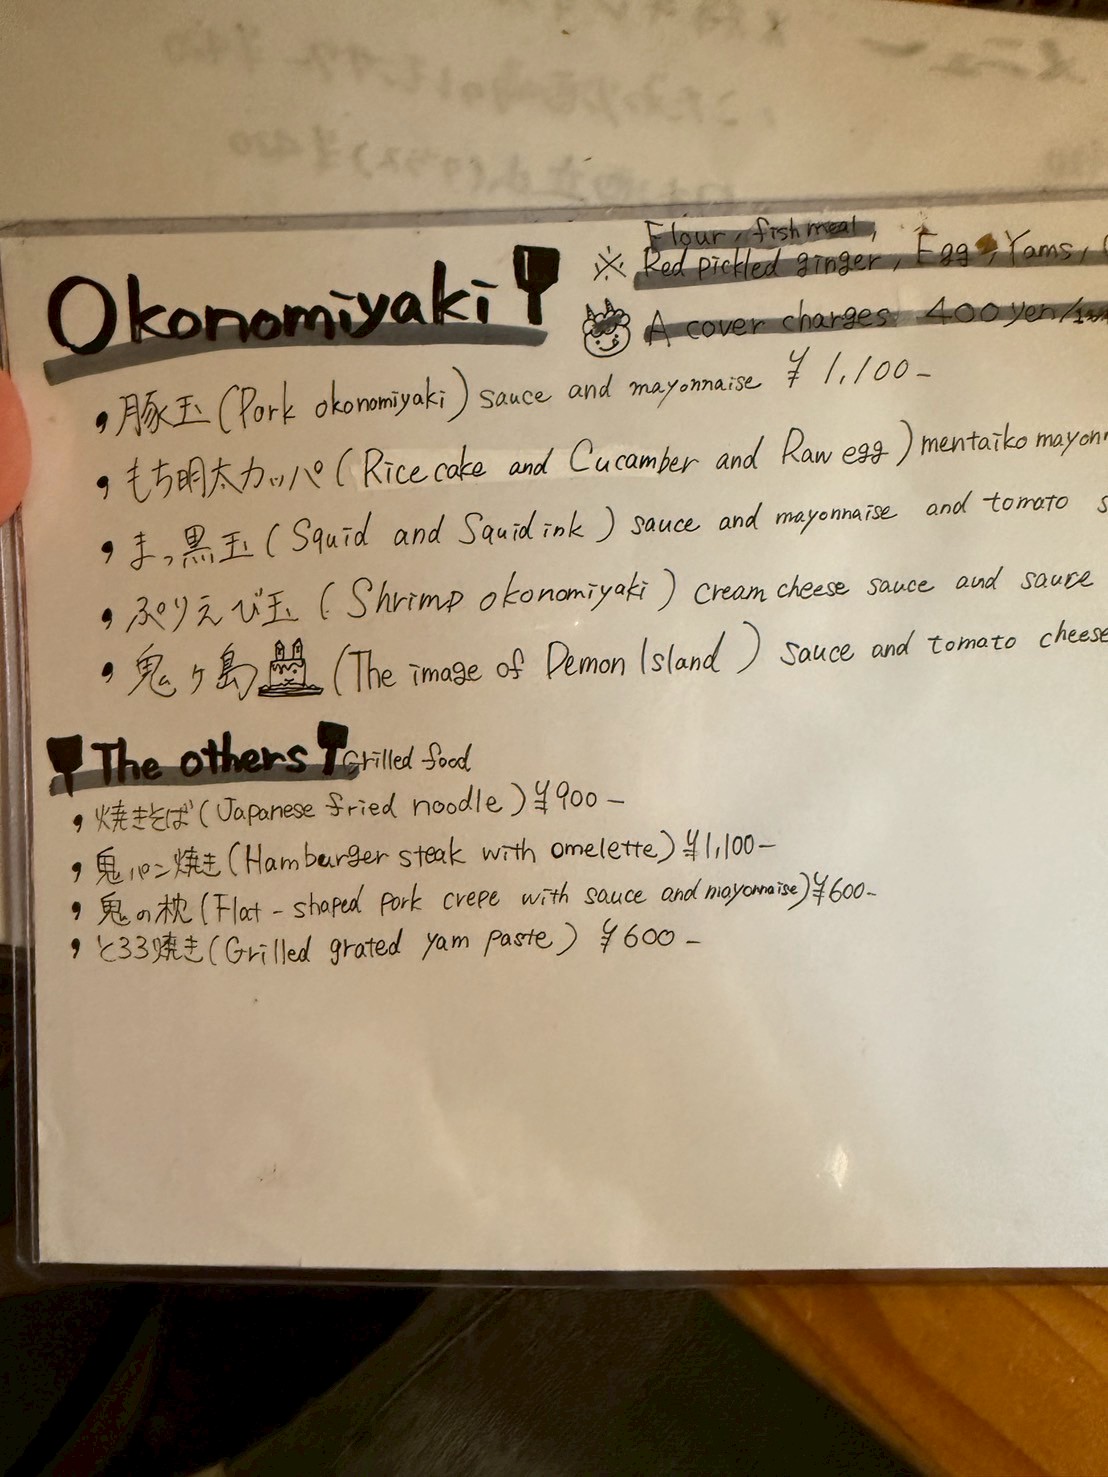 Flour, fish meal,
Okonomiyaki ※ Red pickled ginger, Egg, Yams,
A cover charges 400yen/
・豚玉(Pork okonomiyaki) sauce and mayonnaise ¥1,100-
・もち明太カッパ(Rice cake and Cucamber and Raw egg) mentaiko mayon
・まっ黒玉(Squid and Squid ink) sauce and mayonnaise and tomato s
・ぷりえび玉(Shrimp okonomiyaki) cream cheese sauce and sauce
・鬼ヶ島(The image of Demon Island) sauce and tomato cheese
The others Grilled food
・焼きそば(Japanese fried noodle) ¥900-
・鬼パン焼き(Hamburger steak with omelette) ¥1,100-
・鬼の枕(Flat-shaped pork crepe with sauce and mayonnaise) ¥600-
・とろろ焼き(Grilled grated yam paste) ¥600-